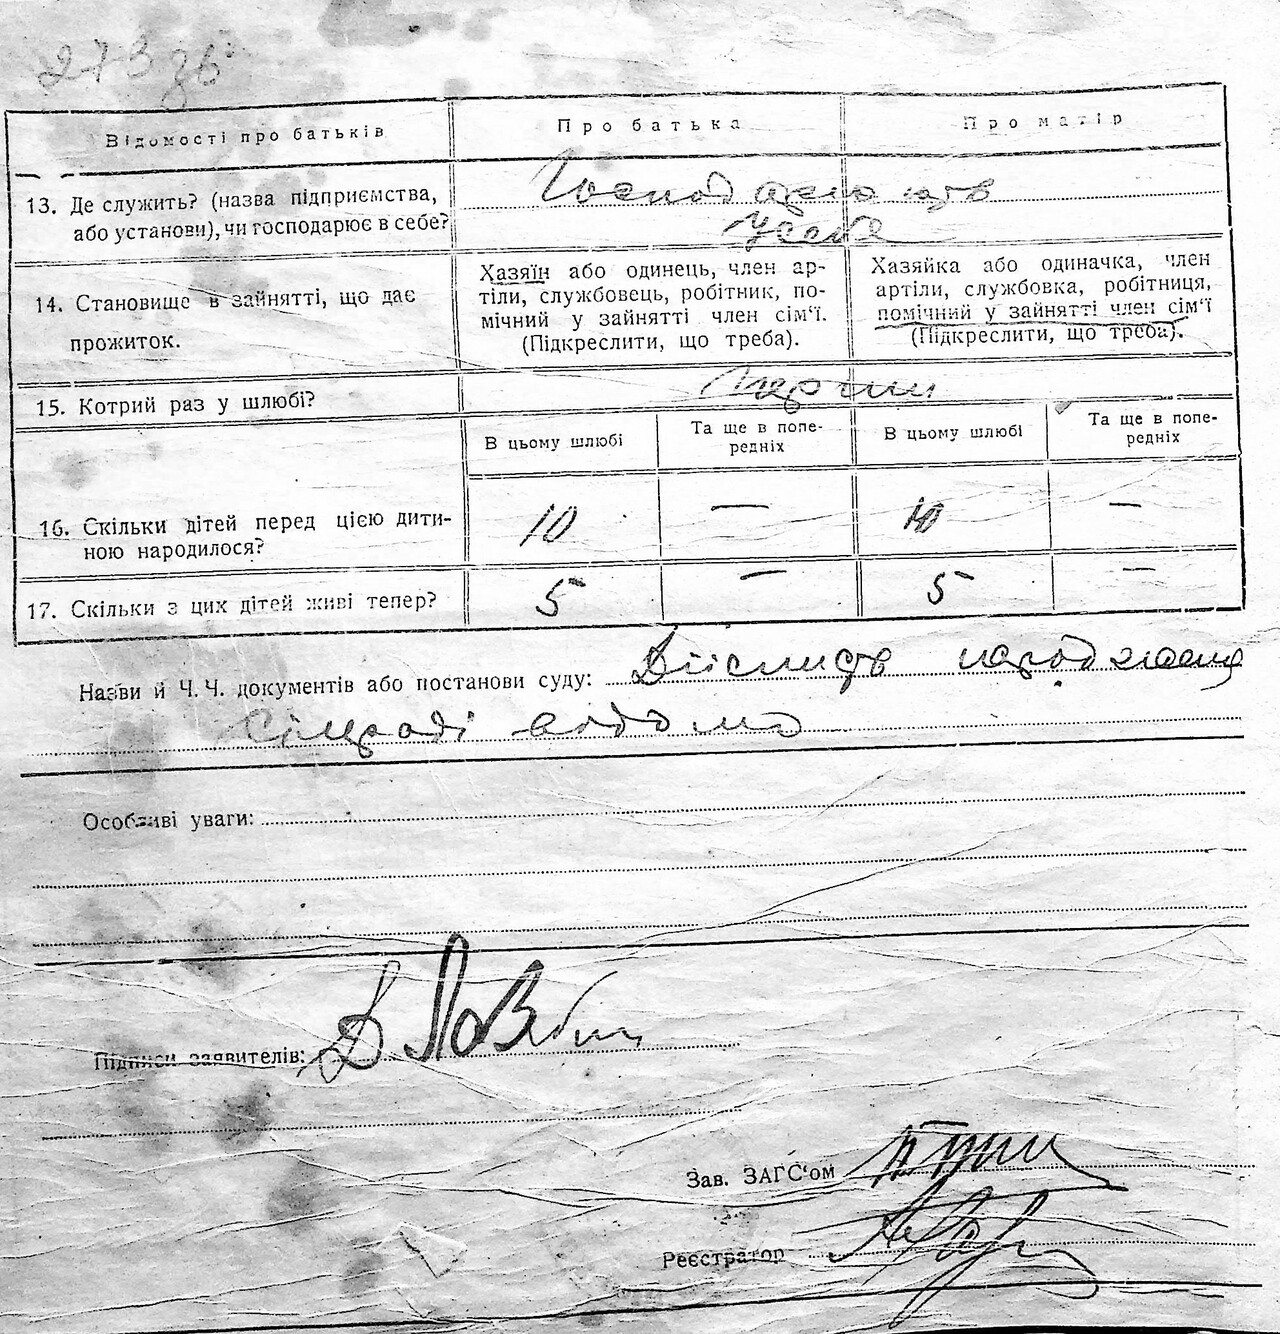 273 зв
Відомості про батьків
Про батька
Про матір
13. Де служить? (назва підприємства,
або установи), чи господарює в себе?
Господарюють
у себе
14. Становище в зайнятті, що дає
прожиток.
Хазяїн або одинець, член ар-
тіли, службовець, робітник, по-
мічний у зайнятті член сім'ї.
(Підкреслити, що треба).
Хазяйка або одиначка, член
артіли, службовка, робітниця,
помічний у зайнятті член сім'ї
(Підкреслити, що треба).
15. Котрий раз у шлюбі?
Перший
В цьому шлюбі
Та ще в попе-
редніх
В цьому шлюбі
Та ще в попе-
редніх
16. Скільки дітей перед цією дити-
ною народилося?
10
—
10
—
17. Скільки з цих дітей живі тепер?
5
—
5
—
Назви й Ч. Ч. документів або постанови суду: Дійсність народження
сільраді відомо
Особливі уваги:
Підписи заявителів:
Зав. ЗАГС'ом
Реєстратор